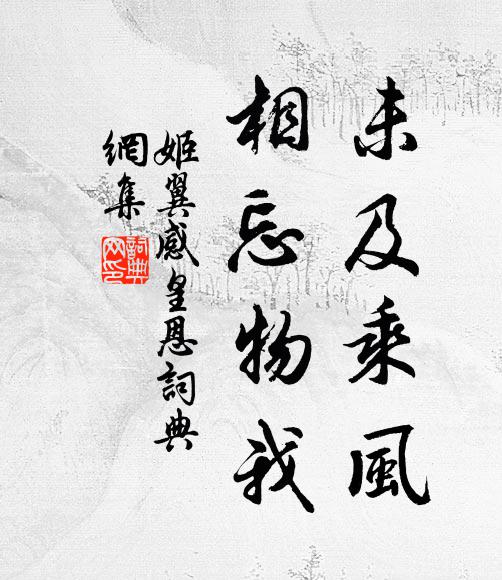 未及乘風
相忘物我
姬翼感皇恩詞典
網集
詞典
网印